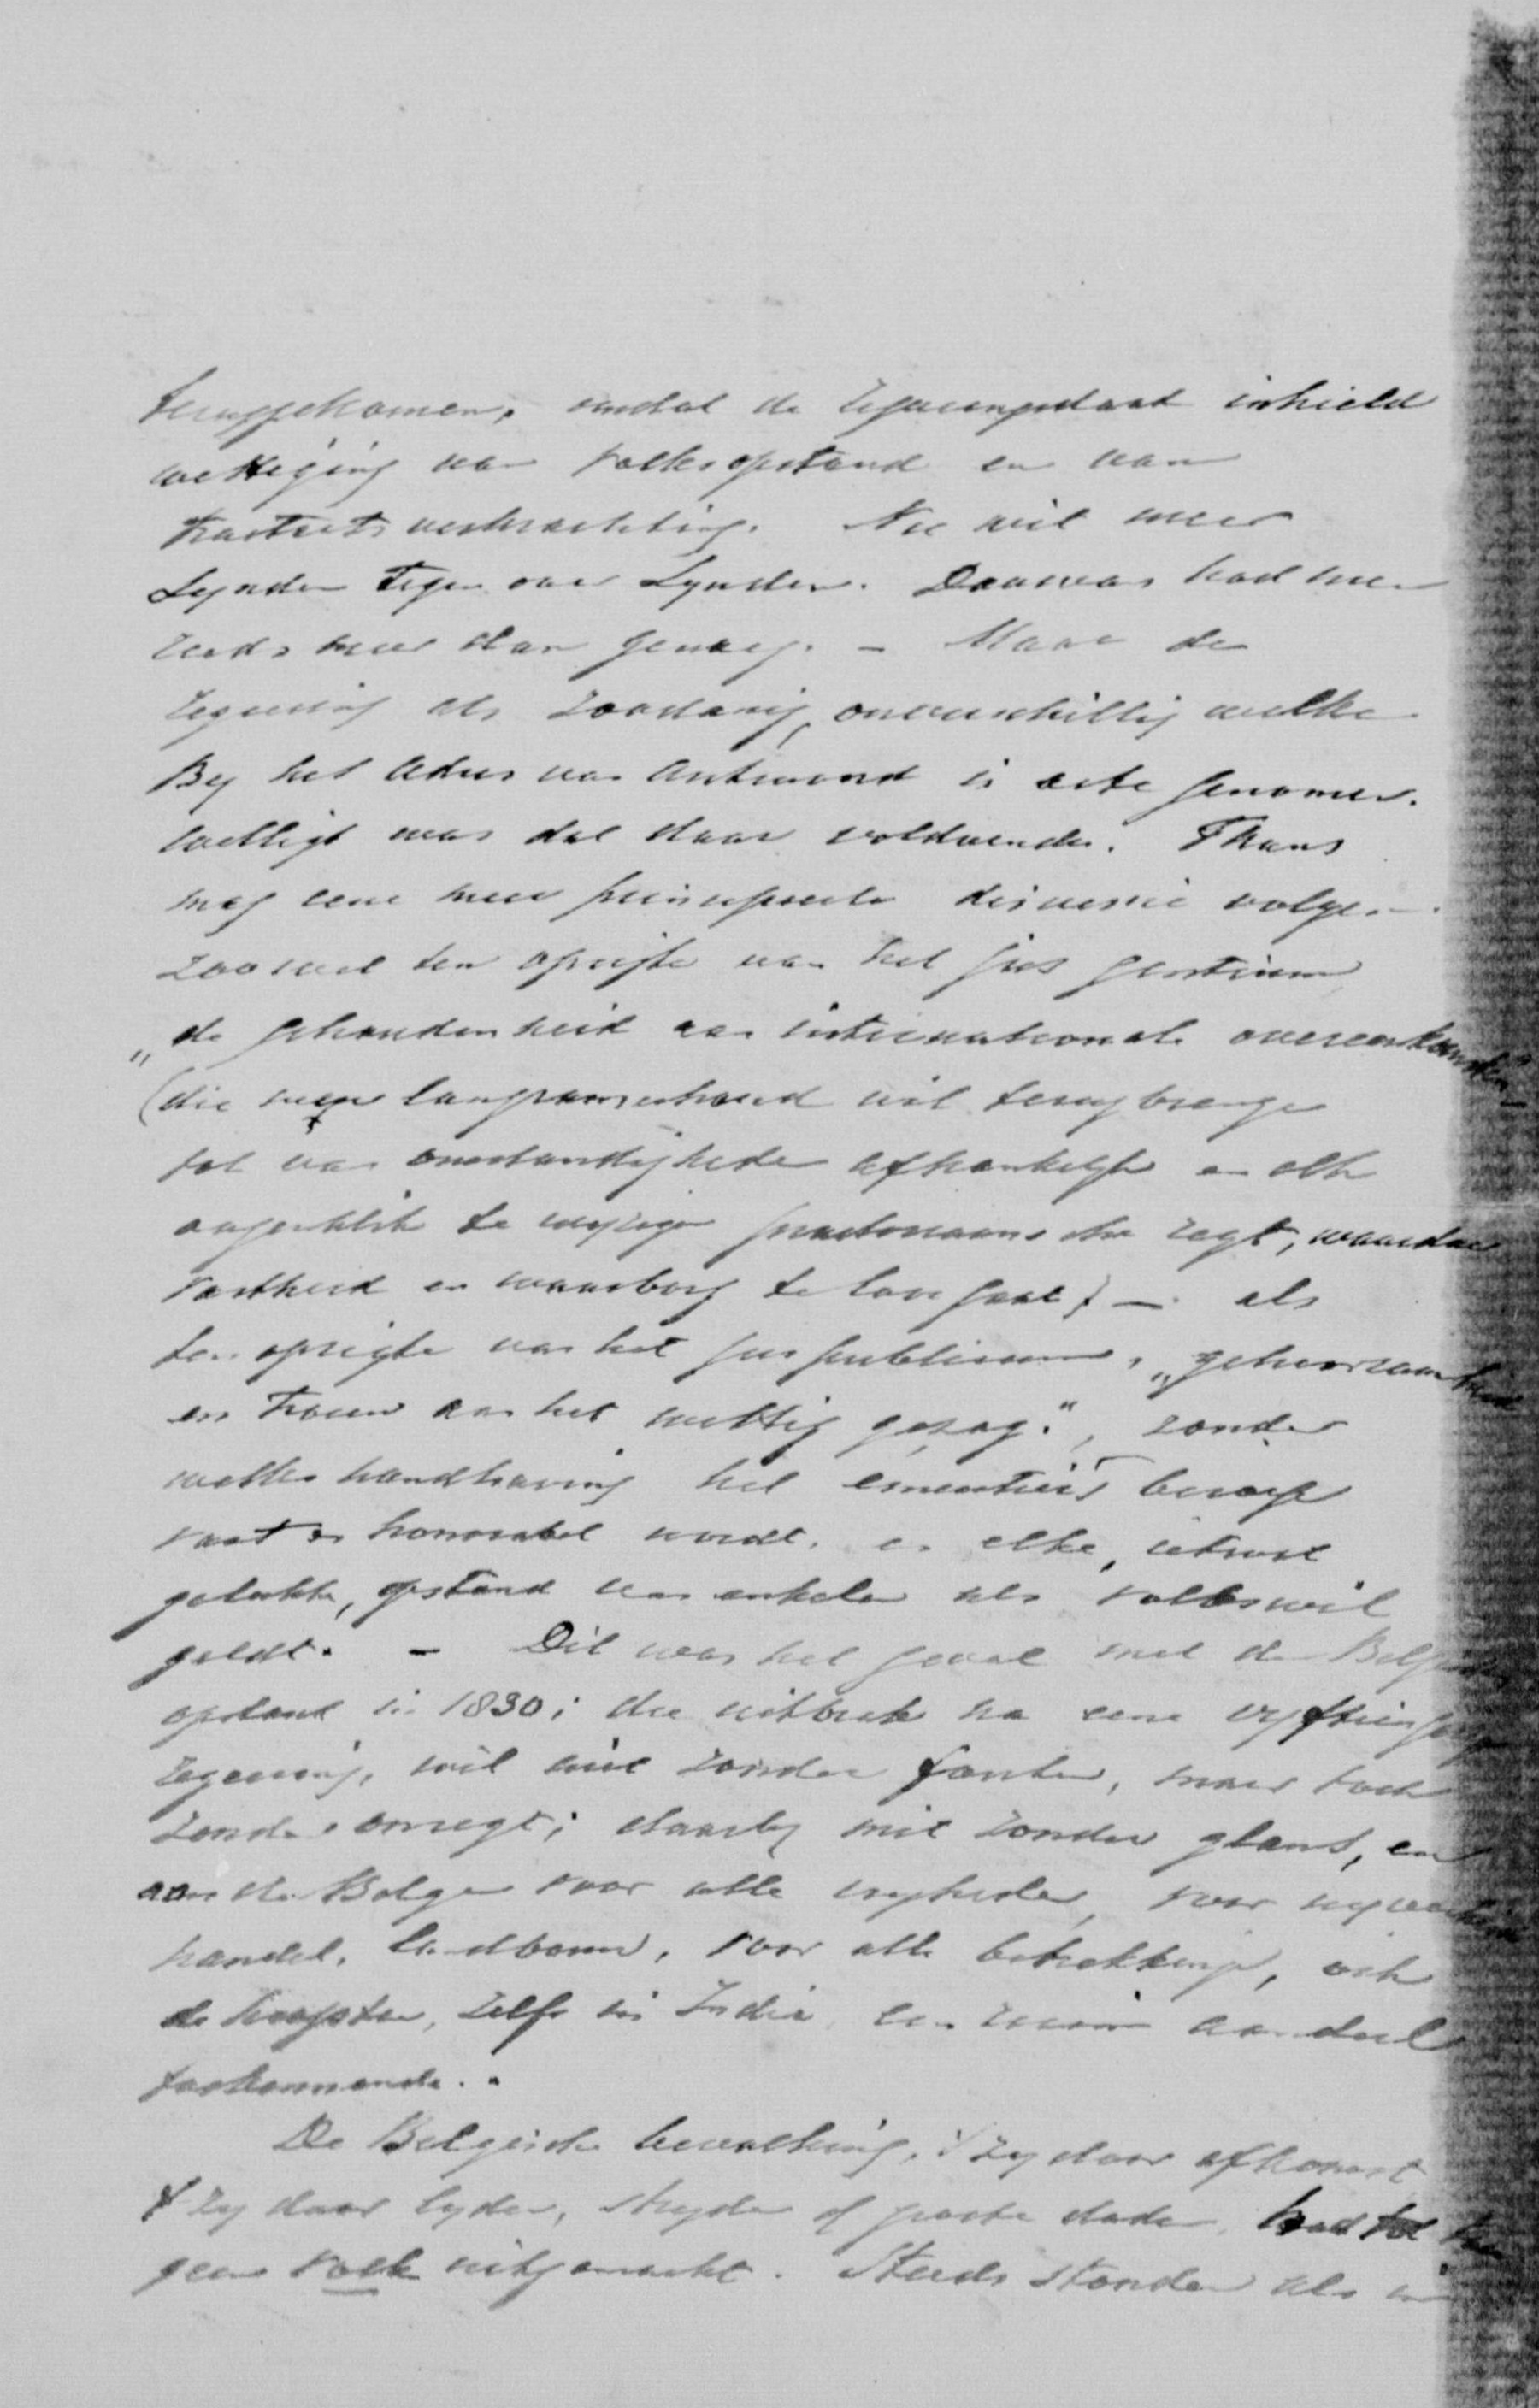 teruggekomen, omdat de regeeringsdaad inhield
wettiging van volksopstand en van
tractaatsverkrachting. Nu niet meer
Lynden tegen over Lynden. Daarvan had men
reeds meer dan genoeg. – Maar de
regeering als zoodanig, onverschillig welke
By het adres van antwoord is acte genomen.
Welligt was dat daar voldoende. Thans
mag eene meer principieele discussie volgen.
zoowel ten opzigte van het jus gentium
„de gehoudenheid aan internationale overeenkomsten"
(die men langzamerhand wil terugbrengen
tot van omstandigheden afhankelyke en elk
oogenblik te wyzigen regt, waardoor
vastheid en waarborg te loor gaat) – als
ten opzigte van het jus publicum, „gehoorzaamheid
en trouw aan het wettig gezag.", zonder
welks handhaving het emeutiers beroep
vast en honorabel wordt, en elke, ietwat
gelukte, opstand van enkelen als volkswil
geldt. – Dit was het geval met den Belgischen
opstand in 1830; die uitbrak na eene vyftienjarige
regeering, wel niet zonder fouten, maar toch
zonder onregt; daarby niet zonder glans, en
aan de Belgen voor alle vryheden, voor nyverheid
handel, landbouw, voor alle betrekkingen, ook
de hoogste, zelfs in Indië, een ruim aandeel
toekennende.
De Belgische bevolking, 't zy door afkomst
't zy door lyden, stryden of groote daden, had tot
geen volk uitgemaakt. Steeds stonden als